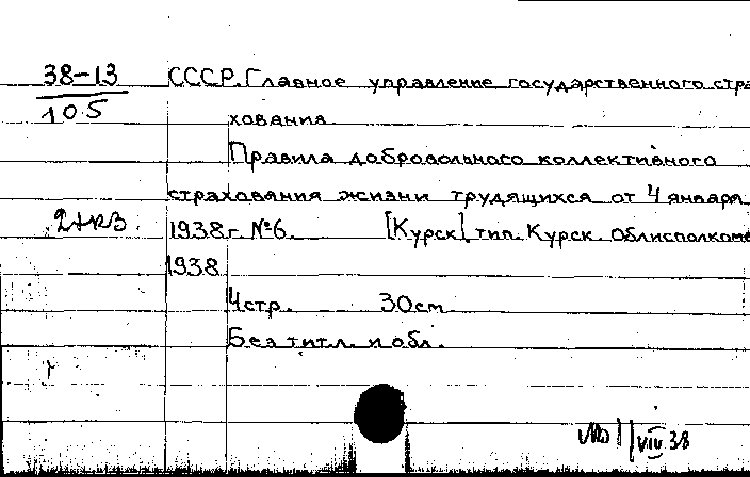 38-13
105
СССР. Главное управление государственного стра
хования.
Правила добровольного коллективного
страхования жизни трудящихся от 4 января
1938 г. №6. [Курск], тип. Курск. облисполкома
1938.
4 стр. 30 cm
Без титл. и обл.
VIII 38